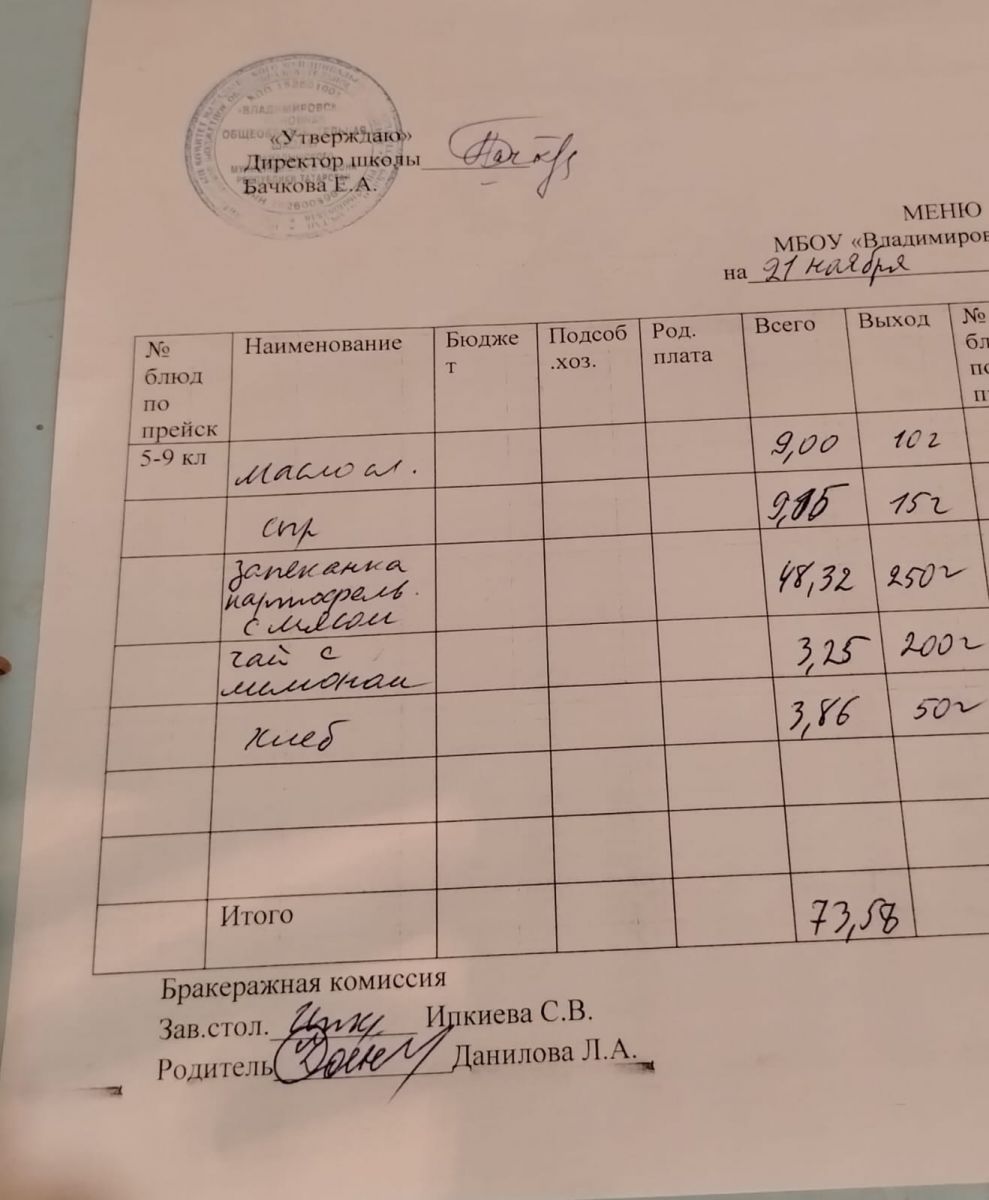 «Утверждаю»
Директор школы
Бачкова Е.А.
МЕНЮ
МБОУ «Владимиров
на 21 ноября
№ блюд по прейск Наименование Бюджет Подсоб.хоз. Род. плата Всего Выход №
5-9 кл масло сл. 9,00 10г
сыр 9,15 15г
запеканка
картофель.
с мясом 48,32 250г
чай с
лимоном 3,25 200г
хлеб 3,86 50г
Итого 73,58
Бракеражная комиссия
Зав.стол. Ипкиева С.В.
Родитель Данилова Л.А.